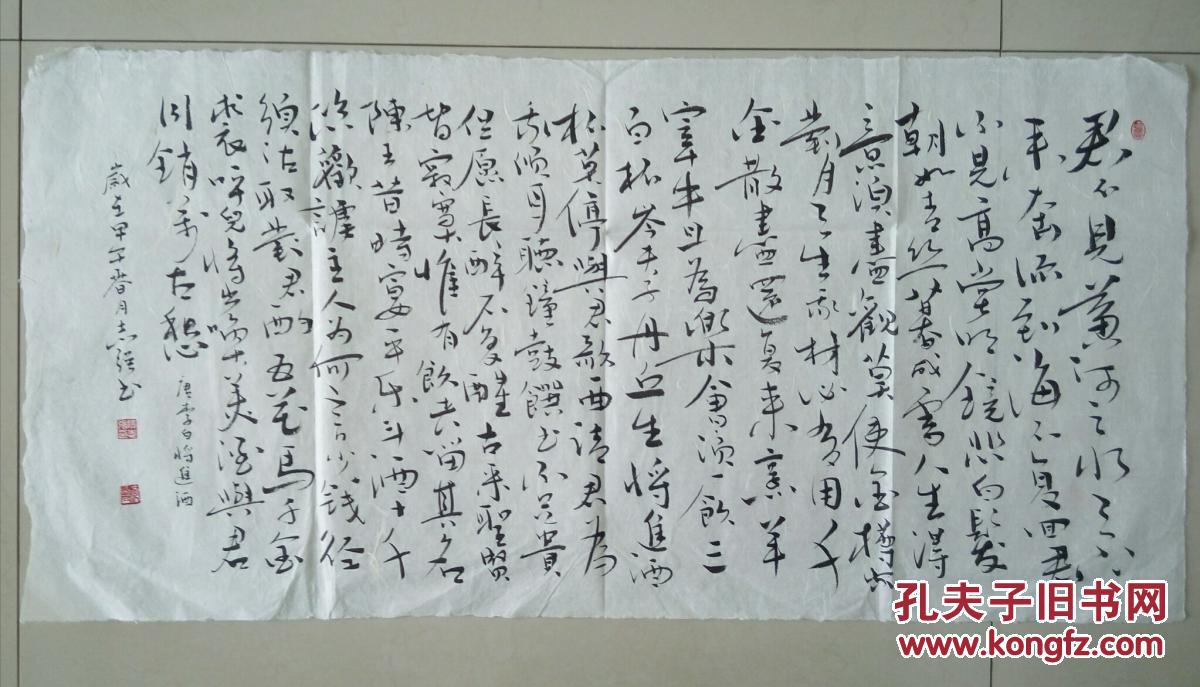 君不見黄河之水天上
来奔流到海不復回君
不見高堂明鏡悲白髮
朝如青丝暮成雪人生得
意須盡歡莫使金樽空
對月天生我材必有用千
金散盡還復来烹羊
宰牛且為樂會須一飲三
百杯岑夫子丹丘生將進酒
杯莫停與君歌一曲請君為
我傾耳聽鐘鼓饌玉不足貴
但愿長醉不復醒古来聖賢
皆寂寞惟有飲者留其名
陳王昔時宴平乐斗酒十千
恣歡謔主人为何言少錢径
須沽取對君酌五花馬千金
裘呼兒將出喚美酒與君
同銷万古愁
唐李白將進酒
歲在甲午春月志强书
孔夫子旧书网
www.kongfz.com